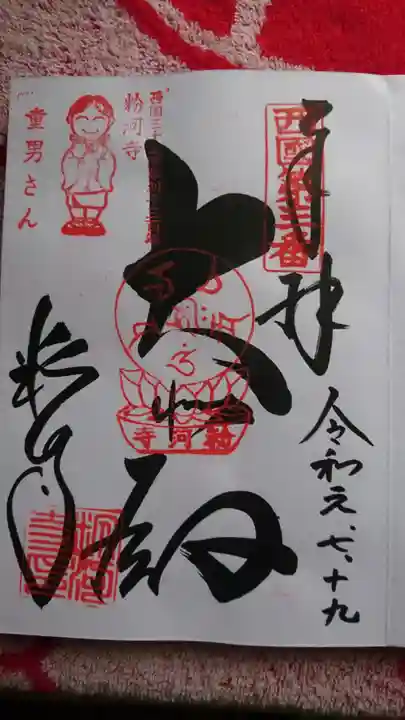 西國第三番
奉拝
令和元、七、十九
大悲殿
粉河寺
粉河寺
西国三十三所
粉河寺
童男さん